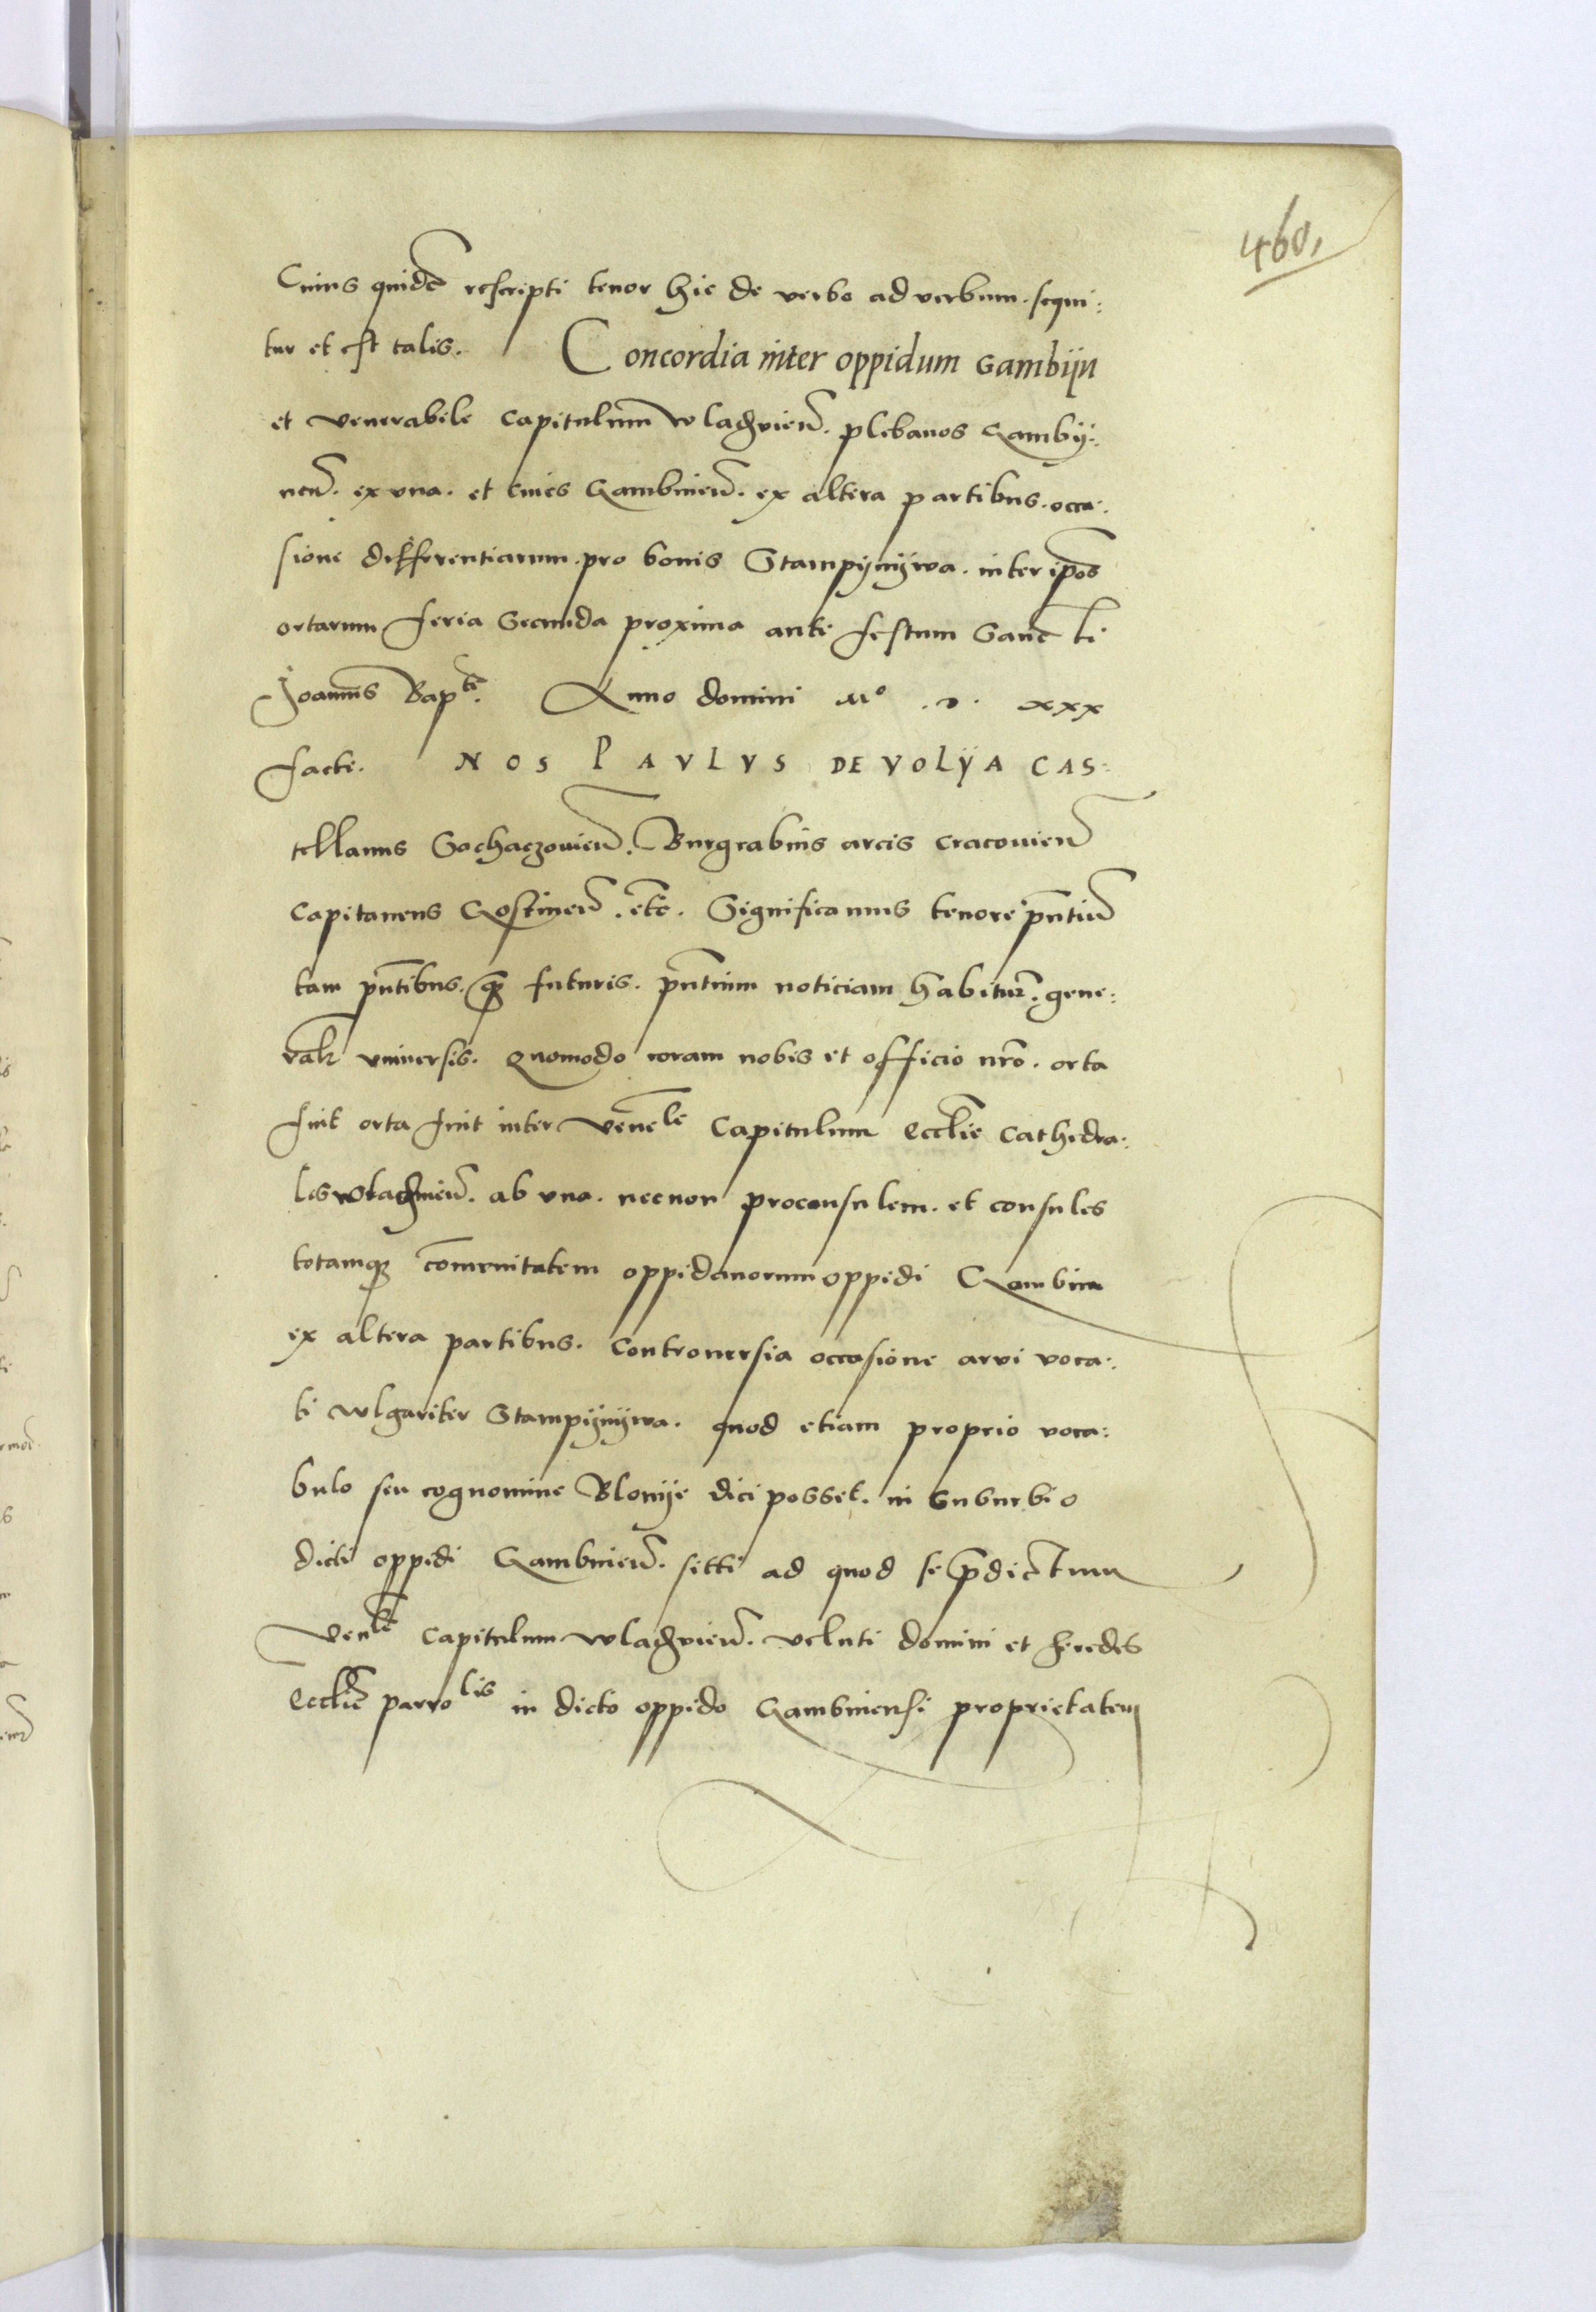 460,
Cuius quidē rescripti tenor hic de verbo ad verbum. sequi:
tur et est talis. Concordia inter oppidum Gambijn
et venerabile Capitulum wladzvieñ. plebanos Gambij:
neñ. ex vna. et ciues Gambineñ. ex altera partibus. occa:
sione differentiarum. pro bonis Stampijnijwa. inter ip̄os
ortarum feria Secunda proxima ante festum Sancti
Joannis Bapte. Anno domini Mo .D. xxx
facte. NOS PAVLVS DE VOLŸA CAS:
tellanus Sochaczovieñ. Burgrabius arcis Cracovieñ
Capitaneus Gostineñ. etc. Significamus tenore pñtiū
tam pñtibus. q̃ futuris. pñtium noticiam habitur̃. gene:
ralr̃ vniversis. Quomodo coram nobis et officio nr̃o. orta
fuit orta fuit inter veñele Capitulum Eccl̃ie Cathedra:
lis wladzvieñ. ab vna. necnon proconsulem. et consules
totamqȝ com̄unitatem oppidanorum oppidi Gambin
ex altera partibus. Controuersia occasione arvi voca:
ti wlgariter Stampijnijwa. quod etiam proprio voca:
bulo seu cognomine Blonije dici posset. in Suburbio
dicti oppidi Gambineñ. sitti ad quod se p̃dictum
Venle Capitulum wladzvieñ. veluti domini et heredes
Eccl̃ie parrolis in dicto oppido Gambinensi proprietatem